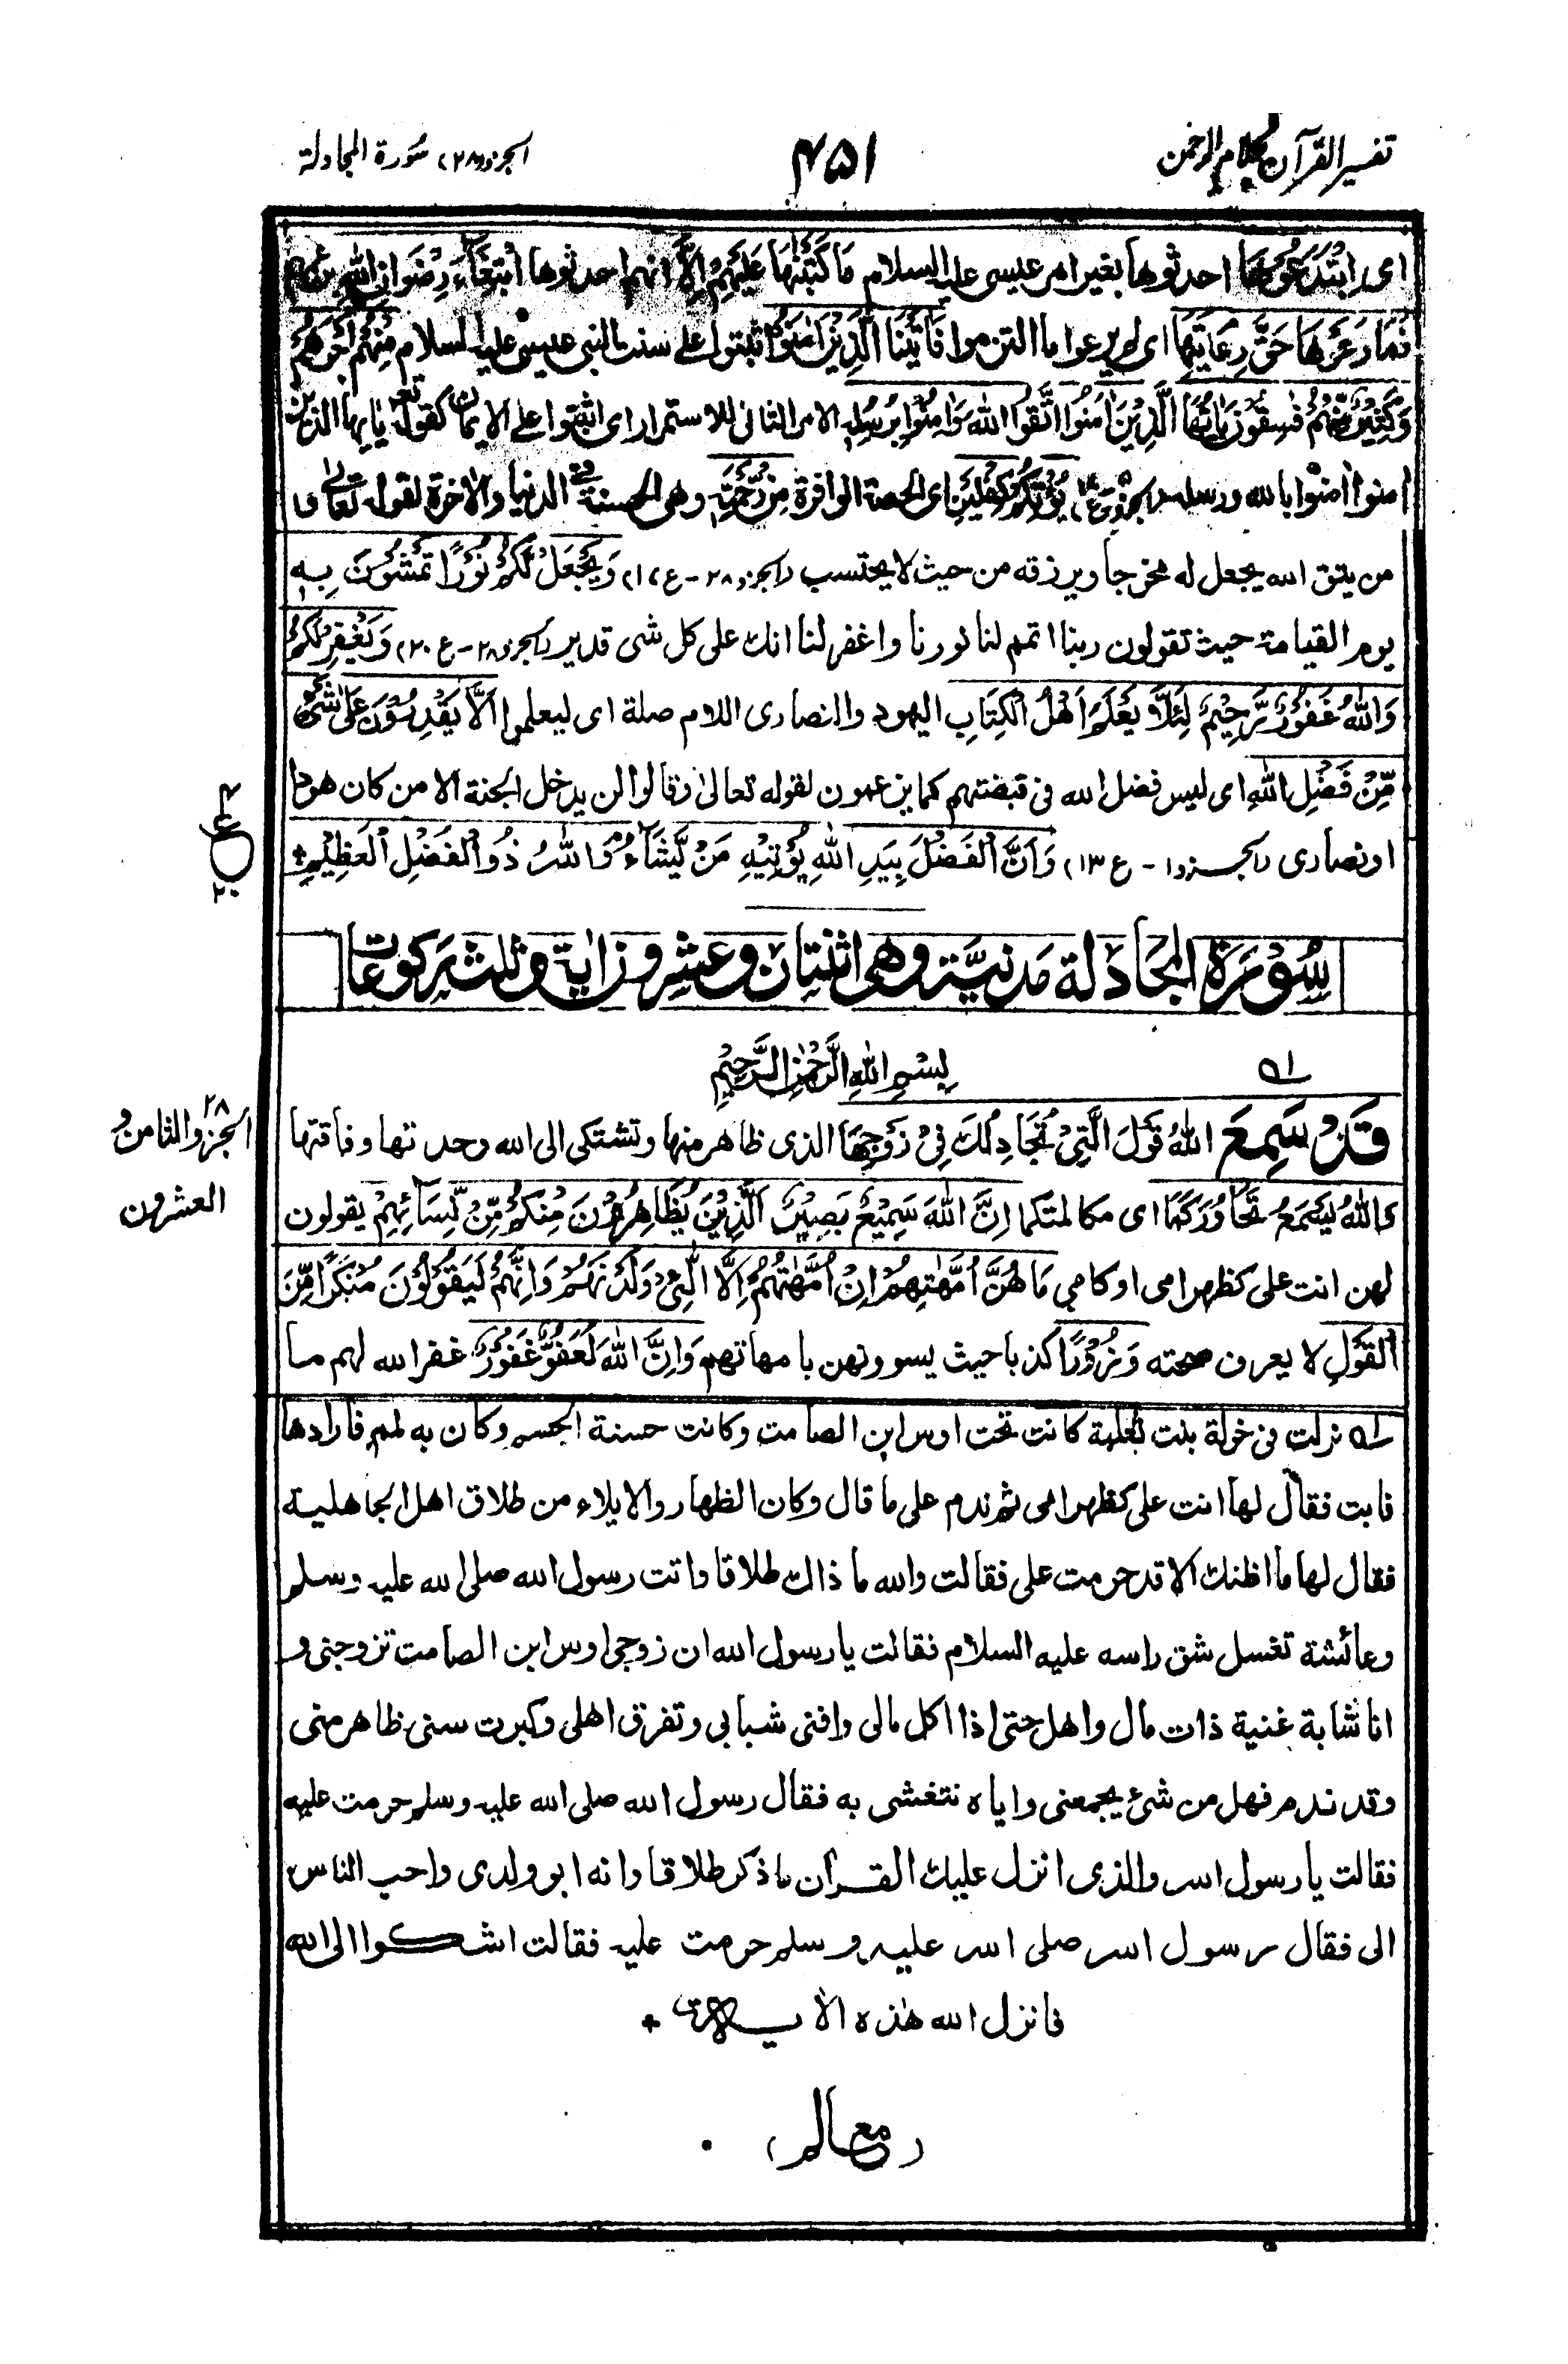 تفسير القرآن بكلام الرحمن
٤٥١
الجزو(٢٨) سورة المجادلة
اى ابْتَدَعُوْهَا احدثوها بغير امر عيسى عليه السلام مَا كَتَبْنٰهَا عَلَيْهِمْ اِلَّا انهم احدثوها ابْتِغَآءَ رِضْوَانِ اللهِ
فَمَا رَعَوْهَا حَقَّ رِعَايَتِهَا اى لم يرعوا ما التزموا فَاٰتَيْنَا الَّذِيْنَ اٰمَنُوْا ثبتوا على سنت النبى عيسى عليه السلام مِنْهُمْ اَجْرَهُمْ
وَكَثِيْرٌ مِّنْهُمْ فٰسِقُوْنَ يٰاَيُّهَا الَّذِيْنَ اٰمَنُوا اتَّقُوا اللهَ وَاٰمِنُوْا بِرَسُوْلِهٖ الامر الثانى للاستمرار اى اثبتوا على الايمان كقوله تعالى يايها الذين
امنوا اٰمنوا بالله ورسله يُؤْتِكُمْ كِفْلَيْنِ اى الحصة الوافرة مِنْ رَّحْمَتِهٖ وهى الحسنة فى الدنيا والاخرة لقوله تعالى و
من يتق الله يجعل له مخرجا ويرزقه من حيث لا يحتسب (الجزو ٢٨ - ع ١٧) وَيَجْعَلْ لَّكُمْ نُوْرًا تَمْشُوْنَ بِهٖ
يوم القيامة حيث تقولون ربنا اتمم لنا نورنا واغفر لنا انك على كل شى قدير (الجزو ٢٨ - ع ٢٠) وَيَغْفِرْ لَكُمْ
وَاللهُ غَفُوْرٌ رَّحِيْمٌ لِئَلَّا يَعْلَمَ اَهْلُ الْكِتَابِ اليهود والنصارى اللام صلة اى ليعلموا اَلَّا يَقْدِرُوْنَ عَلٰى شَىْءٍ
مِّنْ فَضْلِ اللهِ اى ليس فضل الله فى قبضتهم كما يزعمون لقوله تعالىٰ وقالوا لن يدخل الجنة الا من كان هودا
او نصارى (الجزو ١ - ع ١٣) وَاَنَّ الْفَضْلَ بِيَدِ اللهِ يُؤْتِيْهِ مَنْ يَّشَآءُ وَاللهُ ذُو الْفَضْلِ الْعَظِيْمِ +
ع
٢٠
سُوْرَةُ المجادلة مدنيّة وهى اثنتان وعشرون اٰية وثلث ركوعات
بِسْمِ اللهِ الرَّحْمٰنِ الرَّحِيْمِ
قَدْ سَمِعَ اللهُ قَوْلَ الَّتِىْ تُجَادِلُكَ فِىْ زَوْجِهَا الذى ظاهر منها وتشتكى الى الله وحدتها وفاقتها
٢٨
الجزو الثامن و
العشرون
وَاللهُ يَسْمَعُ تَحَاوُرَكُمَا اى مكالمتكما اِنَّ اللهَ سَمِيْعٌ بَصِيْرٌ اَلَّذِيْنَ يُظَاهِرُوْنَ مِنْكُمْ مِّنْ نِّسَآئِهِمْ يقولون
لهن انت على كظهر امى او كامي مَا هُنَّ اُمَّهٰتِهِمْ اِنْ اُمَّهٰتُهُمْ اِلَّا الّٰٓئِىْ وَلَدْنَهُمْ وَاِنَّهُمْ لَيَقُوْلُوْنَ مُنْكَرًا مِّنَ
الْقَوْلِ لا يعرف صحته وَزُوْرًا كذبا حيث يسوونهن بامهاتهم وَاِنَّ اللهَ لَعَفُوٌّ غَفُوْرٌ غفر الله لهم ما
له نزلت فى خولة بنت ثعلبة كانت تحت اوس ابن الصامت وكانت حسنة الجسم وكان به لمم فارادها
فابت فقال لها انت على كظهر امى ثم ندم على ما قال وكان الظهار والايلاء من طلاق اهل الجاهلية
فقال لها ما اظنك الا قد حرمت على فقالت والله ما ذاك طلاقا واتت رسول الله صلى الله عليه وسلم
وعائشة تغسل شق راسه عليه السلام فقالت يا رسول الله ان زوجى اوس ابن الصامت تزوجنى و
انا شابة غنية ذات مال واهل حتى اذا اكل مالى وافنى شبابى وتفرق اهلى وكبرت سنى ظاهر منى
وقد ندم فهل من شئ يجمعنى واياه نتغشى به فقال رسول الله صلى الله عليه وسلم حرمت عليه
فقالت يا رسول الله والذى انزل عليك القرآن ما ذكر طلاقا وانه ابو ولدى واحب الناس
الى فقال رسول الله صلى الله عليه وسلم حرمت عليه فقالت اشكوا الى الله
فانزل الله هٰذه الاٰية +
(معالم)